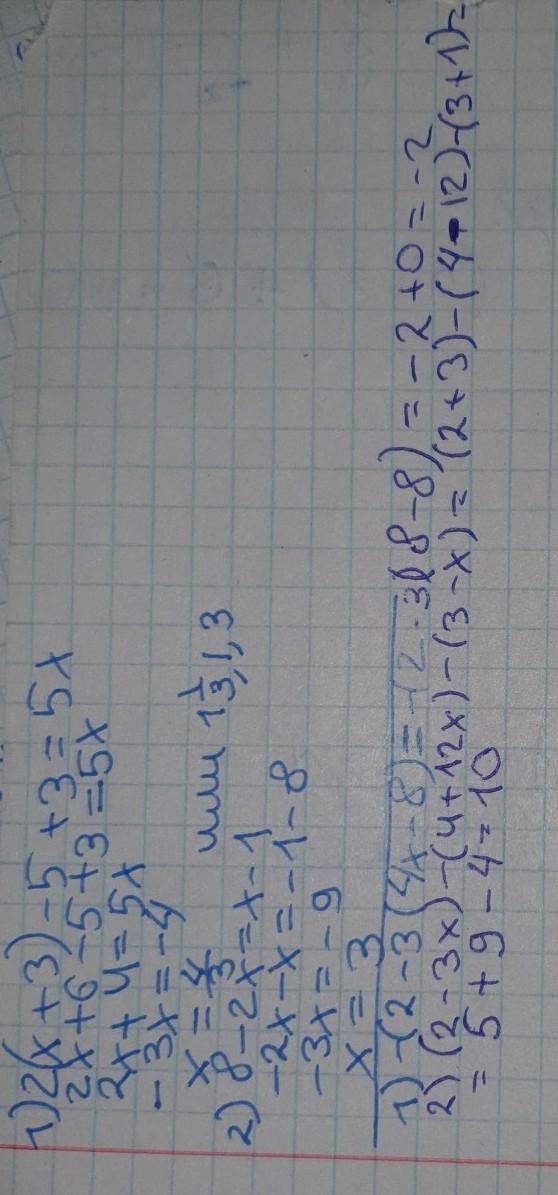 1) 2(x+3)-5+3=5x
2x+6-5+3=5x
2x+4=5x
-3x=-4
x=4/3 или 1 1/3, 1,3
2) 8-2x=x-1
-2x-x=-1-8
-3x=-9
x=3
1) -(2-3(4x-8)=-(2-3(8-8)=-2+0=-2
2) (2-3x)-(4+12x)-(3-x)=(2+3)-(4-12)-(3+1)=
=5+9-4=10